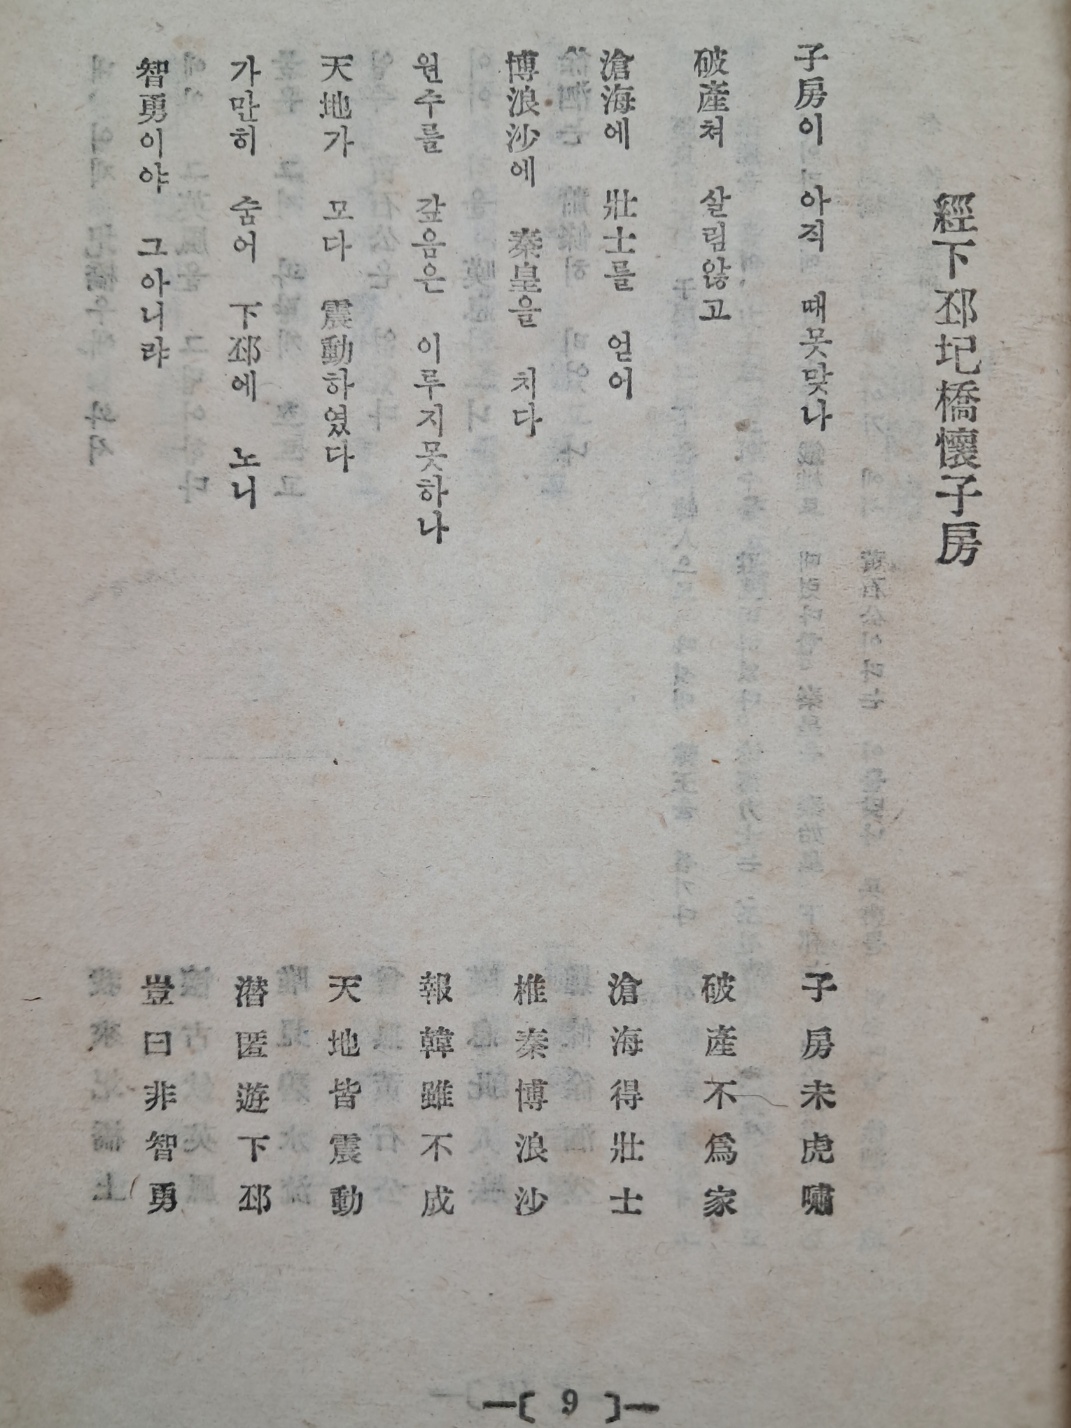 經下邳圯橋懷子房
子房이 아직 때못맞나
破產쳐 살림않고
滄海에 壯士를 얻어
博浪沙에 秦皇을 치다
원수를 갚음은 이루지못하나
天地가 모다 震動하였다
가만히 숨어 下邳에 노니
智勇이야 그아니랴
子房未虎嘯
破產不爲家
滄海得壯士
椎秦博浪沙
報韓雖不成
天地皆震動
潛匿遊下邳
豈曰非智勇
9